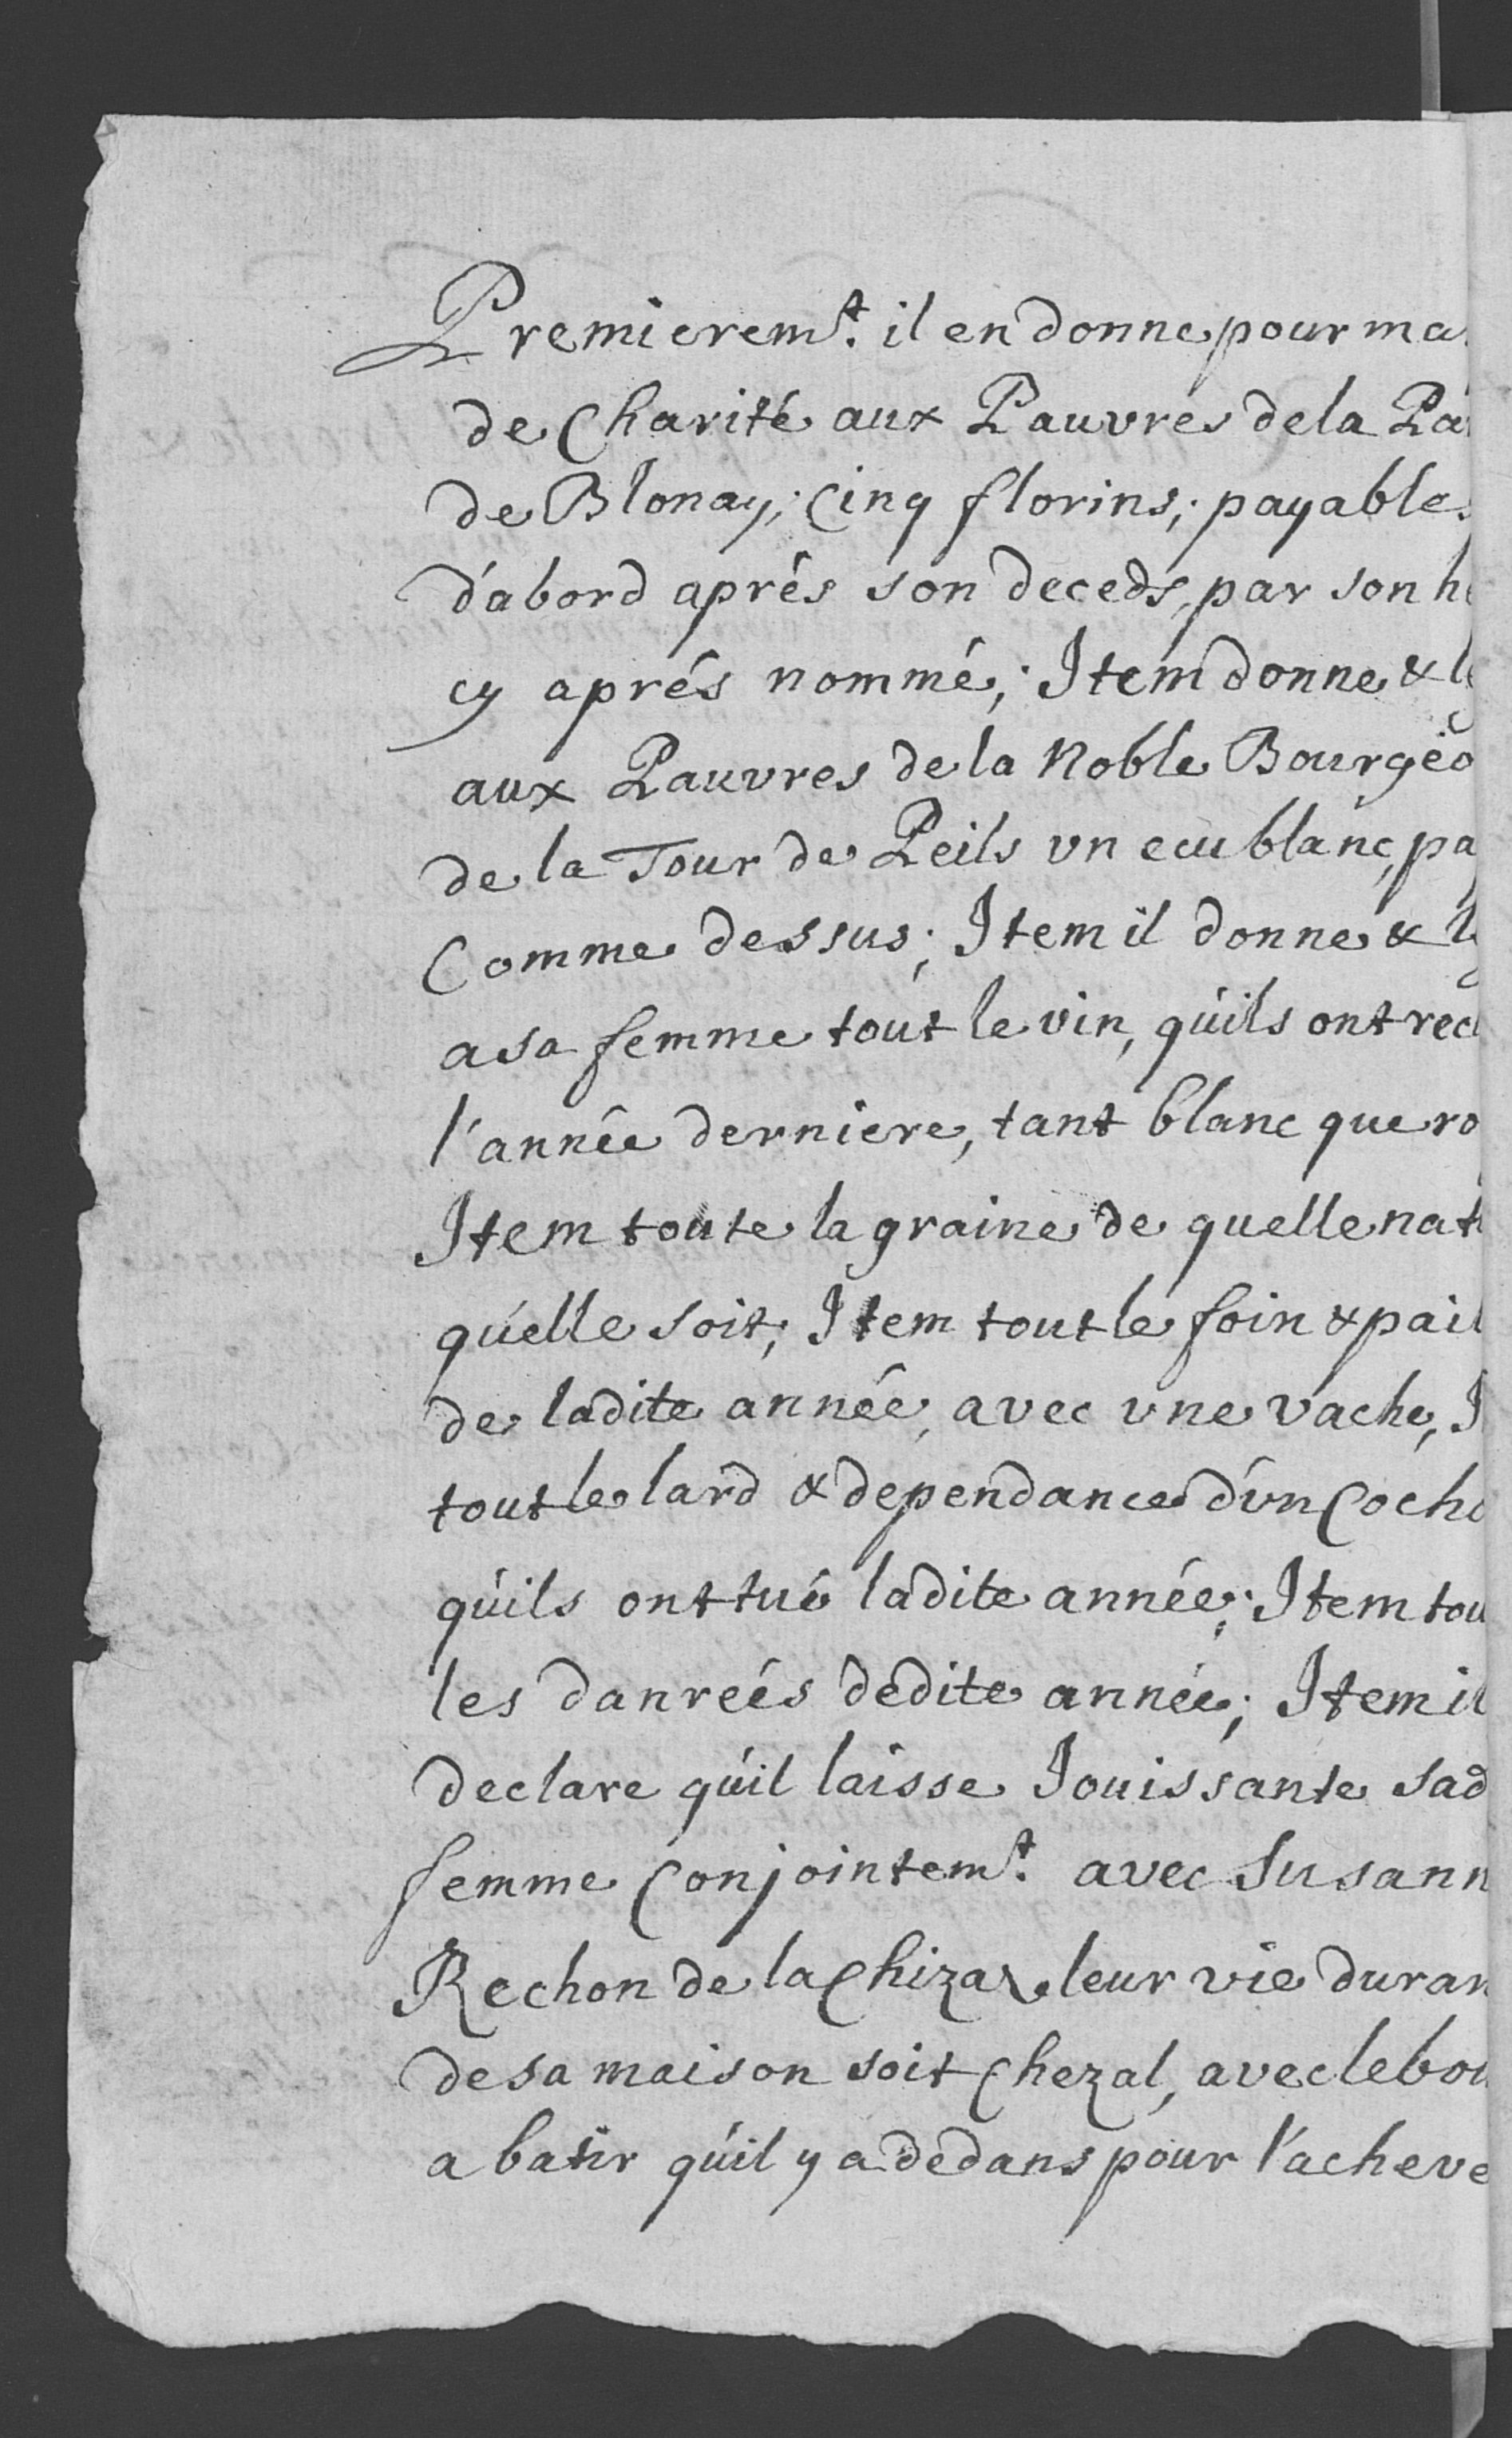 Premierem.t il en donne pour ma
de Charité aux Pauvres de la Pa
de Blonay; Cinq florins; payable
d'abord aprés son deceds, par son h
cy aprés nommé; Item donne & l
aux Pauvres de la Noble Bourgeo
de la Tour de Peils vn ecu blanc, pa
Comme dessus; Item il donne & l
a sa femme tout le vin, qu'ils ont rec
l'année derniere, tant blanc que ro
Item toute la graine de quelle nat
qu'elle soit; Item tout le foin & pail
de ladite année, avec vne vache, I
tout le lard & dependance d'vn Coch
qu'ils ont tué ladite année; Item tou
les danreés dedite année; Item il
declare qu'il laisse Jouissante sad
femme Conjointem.t avec Susann
Rechon de la Chizaz leur vie duran
de sa maison soit Chezal, avec le bo
a batir qu'il y a dedans pour l'acheve